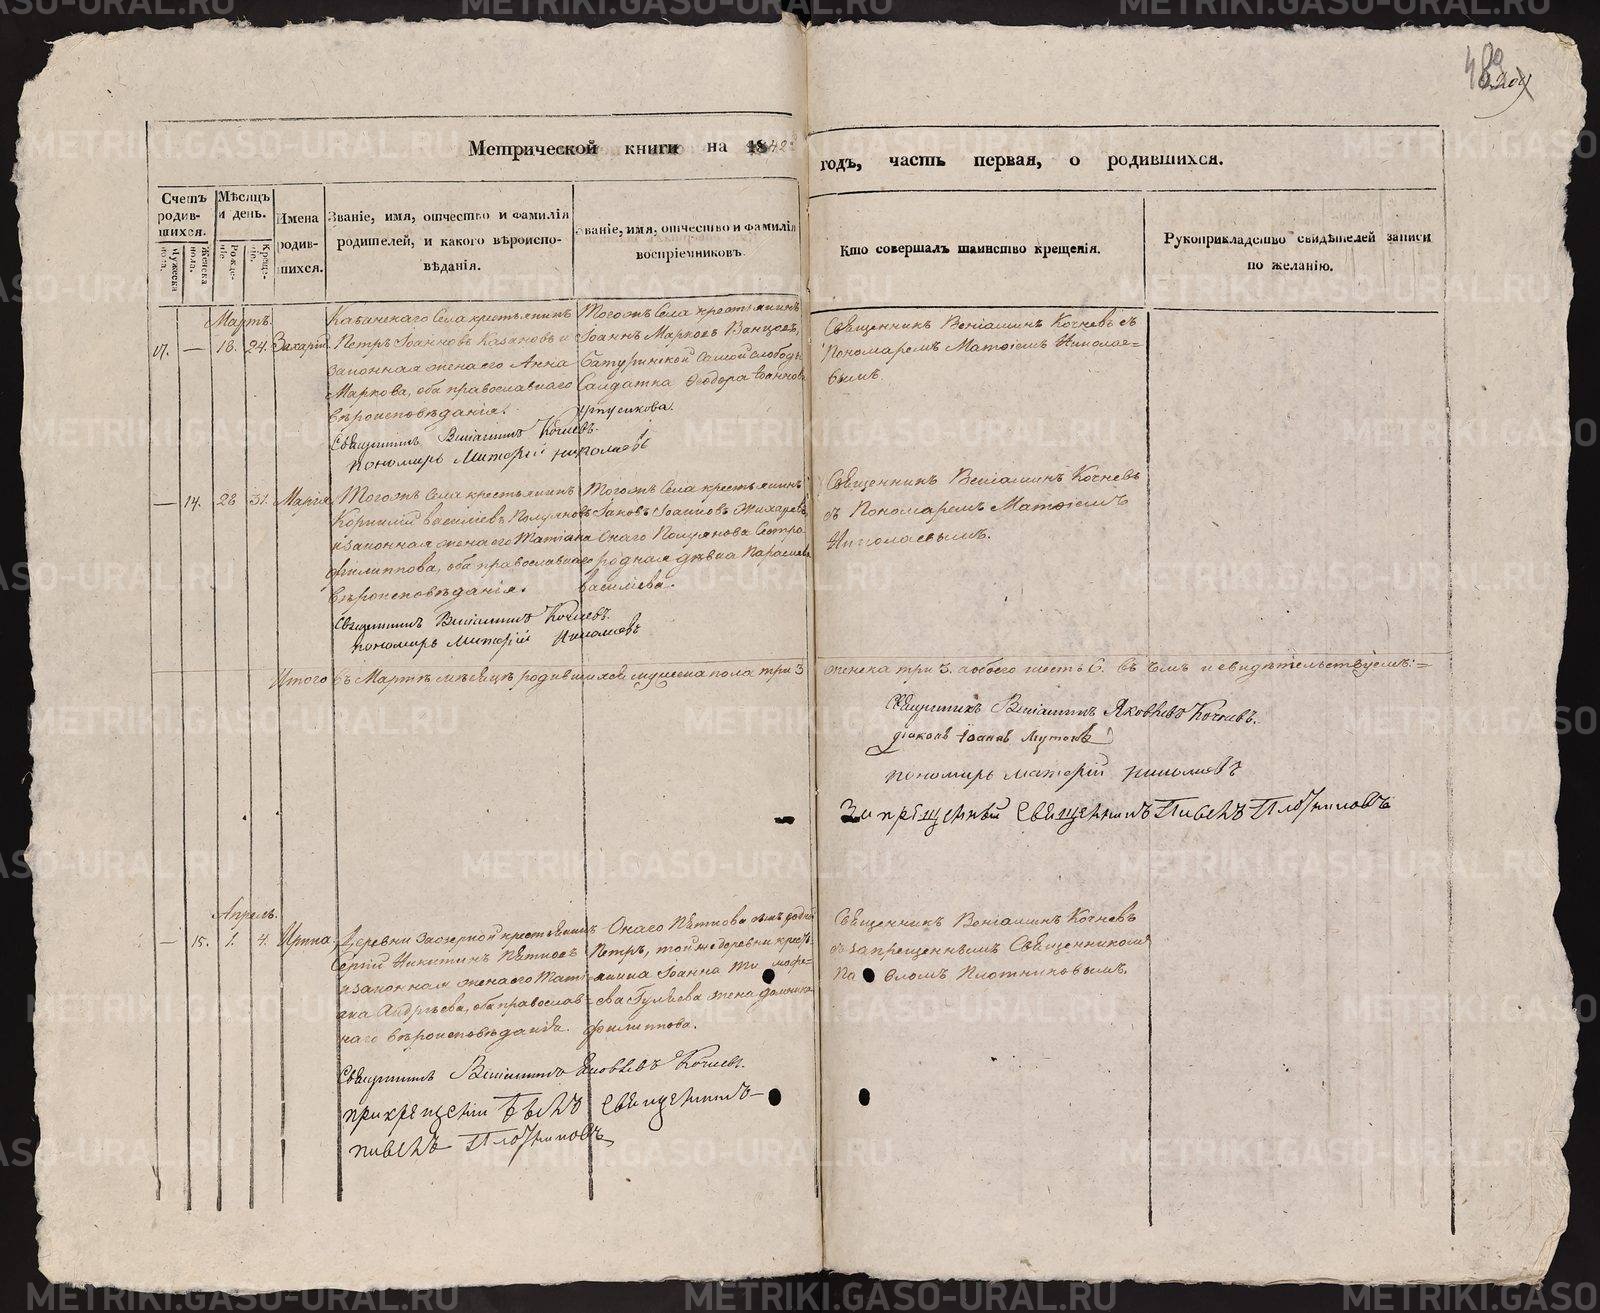 Метрической книги на 1842й годъ, часть первая, о родившихся.
Счетъ родившихся.
Мужеска пола.
Женска пола.
Мѣсяцъ и день.
Рожденіе.
Крещеніе.
Имена родившихся.
Званіе, имя, отчество и фамилія родителей, и какого вѣроисповѣданія.
Званіе, имя, отчество и фамилія воспріемниковъ.
Кто совершалъ таинство крещенія.
Рукоприкладство свидѣтелей записи по желанію.
Мартъ.
17. — 18. 24. Захарій.
Села крестьянинъ
Петръ Іоанновъ Казановъ и
законная жена его Анна
Маркова, оба православнаго
вѣроисповѣданія.
Тогожъ Села крестьянинъ
Іоаннъ Марковъ
Батуринской слободы
Салдатка Ѳеодора Іоаннова
Священникъ Веніаминъ Кочневъ съ
Пономаремъ Матѳіемъ Николае-
вымъ.
Священникъ Веніаминъ Кочневъ.
пономарь Матфій николаевъ
— 14. 28 31. Марія
Тогожъ Села крестьянинъ
Корнилій Василіевъ
и законная жена его Татіана
Филиппова, оба православнаго
вѣроисповѣданія.
Тогожъ Села крестьянинъ
Іаковъ Іоанновъ Жихаревъ,
Онаго Сестра
родная дѣвка Параскева
Василіева.
Священникъ Веніаминъ Кочневъ
съ Пономаремъ Матѳіемъ
Николаевымъ.
Священникъ Веніаминъ Кочневъ.
пономарь Матфій Николаевъ
Итого въ Мартѣ мѣсяцѣ родившихся мужеска пола три 3 женска три 3. а обоего шесть 6. въ чемъ и свидѣтельствуемъ:=
Священникъ Веніаминъ Яковлевъ Кочневъ.
діаконъ Іоаннъ
пономарь матфій николаевъ
Запрещенный священникъ Павелъ Плотниковъ
Апрель.
— 15. 1. 4. Ирина.
Деревни Заозерной крестьянинъ
Сергій Никитинъ Пѣтковъ
и законная жена его Таті-
ана Андрѣева, оба православ-
наго вѣроисповѣданія.
Онаго Пѣткова сынъ родной
Петръ, той же деревни кресть-
янина Іоанна Тимофе-
ева Гуляева жена Домника
Филиппова.
Священникъ Веніаминъ Кочневъ
съ запрещеннымъ Священникомъ
Павломъ Плотниковымъ.
Священникъ Веніаминъ Яковлевъ Кочневъ.
при крещеніи былъ священникъ
павелъ Плотниковъ
METRIKI.GASO-URAL.RU